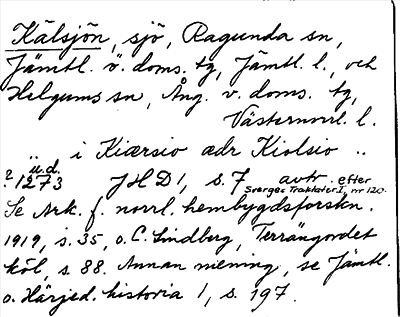 Kälsjön, sjö, Ragunda sn,
Jämtl. ö. doms. tg, Jämtl. l., och
Helgums sn, Ång. v. doms. tg,
Västernorrl. l.
.. i Kiærsio ædr Kiolsio ..
? u.d.
1273 JHD 1, s. 7 avtr. efter
Sverges Traktater I, nr 120.
Se Ark. f. norrl. hembygdsforskn.
1919, s. 35, o. C. Lindberg, Terrängordet
köl, s. 88. Annan mening, se Jämtl.
o. Härjed. historia 1, s. 197.